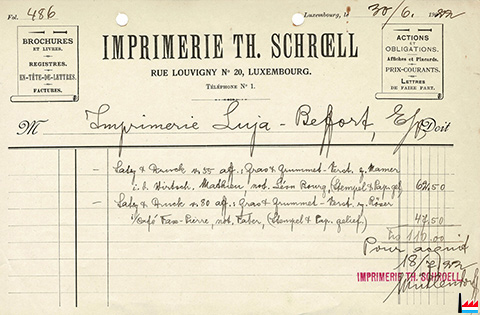 Fol. 486
Luxembourg, le 30/6. 1922
BROCHURES
ET LIVRES.
REGISTRES.
EN-TÊTE-DE-LETTRES.
FACTURES.
IMPRIMERIE TH. SCHRŒLL
RUE LOUVIGNY Nº 20, LUXEMBOURG.
TÉLÉPHONE Nº 1.
ACTIONS
ET
OBLIGATIONS.
Affiches et Placards.
PRIX-COURANTS.
LETTRES
DE FAIRE PART.
M Imprimerie Luja - Beffort, E/V Doit
- Satz & Druck v. 55 aff.: Gras & Grummet-Verst. z. Mamer
i. d. Wirtsch. Mathieu, not. Léon Bourg, (Stempel & Pap. gel. 62,50
- Satz & Druck v. 30 aff.: Gras & Grummet-Verst. z. Röser
Café Fax-Pierre, not. Faber, (Stempel & Pap. gelief.) 47,50
110.00
Pour acquit
18/7 22
IMPRIMERIE TH. SCHROELL